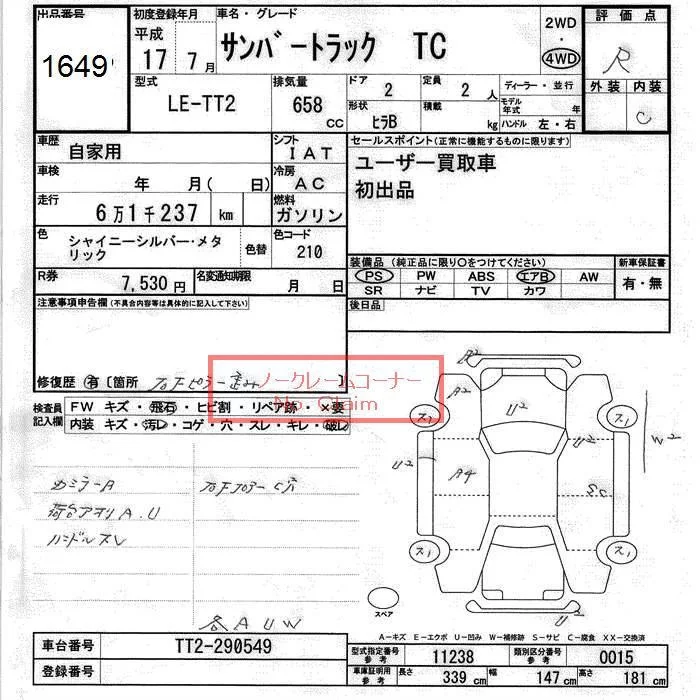 出品番号
1649
初度登録年月
平成
17 7 月
車名・グレード
サンバートラック TC
2WD
・
4WD
評価点
R
外装 内装
C
型式
LE-TT2
排気量
658 cc
ドア
2
定員
2 人
形状
ヒラB
積載
kg
ディーラー・並行
モデル年式 年
ハンドル 左・右
車歴
自家用
シフト
IAT
車検
年 月( 日)
冷房
AC
走行
6万1千237 km
燃料
ガソリン
色
シャイニーシルバー・メタリック
色替
色コード
210
R券
7,530 円
名変通知期限
月 日
セールスポイント(正常に機能するものに限ります)
ユーザー買取車
初出品
装備品(純正品に限り○をつけてください)
PS PW ABS エアB AW
SR ナビ TV カワ
新車保証書
有・無
後日品
注意事項申告欄(不具合内容等は具体的に記入して下さい)
修復歴 有〔箇所
ノークレームコーナー
No Claim
検査員記入欄
FW キズ・飛石・ヒビ割・リペア跡・×要
内装 キズ・汚レ・コゲ・穴・スレ・キレ・破レ
カミラーA
荷台アオリA.U
ハンドルスレ
各AUW
A2
A2
U2
ス1
ス1
U2
U2
W2
A4
SC
ス1
ス1
U2
スペア
A-キズ E-エクボ U-凹み W-補修跡 S-サビ C-腐食 XX-交換済
車台番号
TT2-290549
登録番号
型式指定番号
参考
11238
類別区分番号
参考
0015
車庫証明用
参考
長さ
339 cm
幅
147 cm
高さ
181 cm